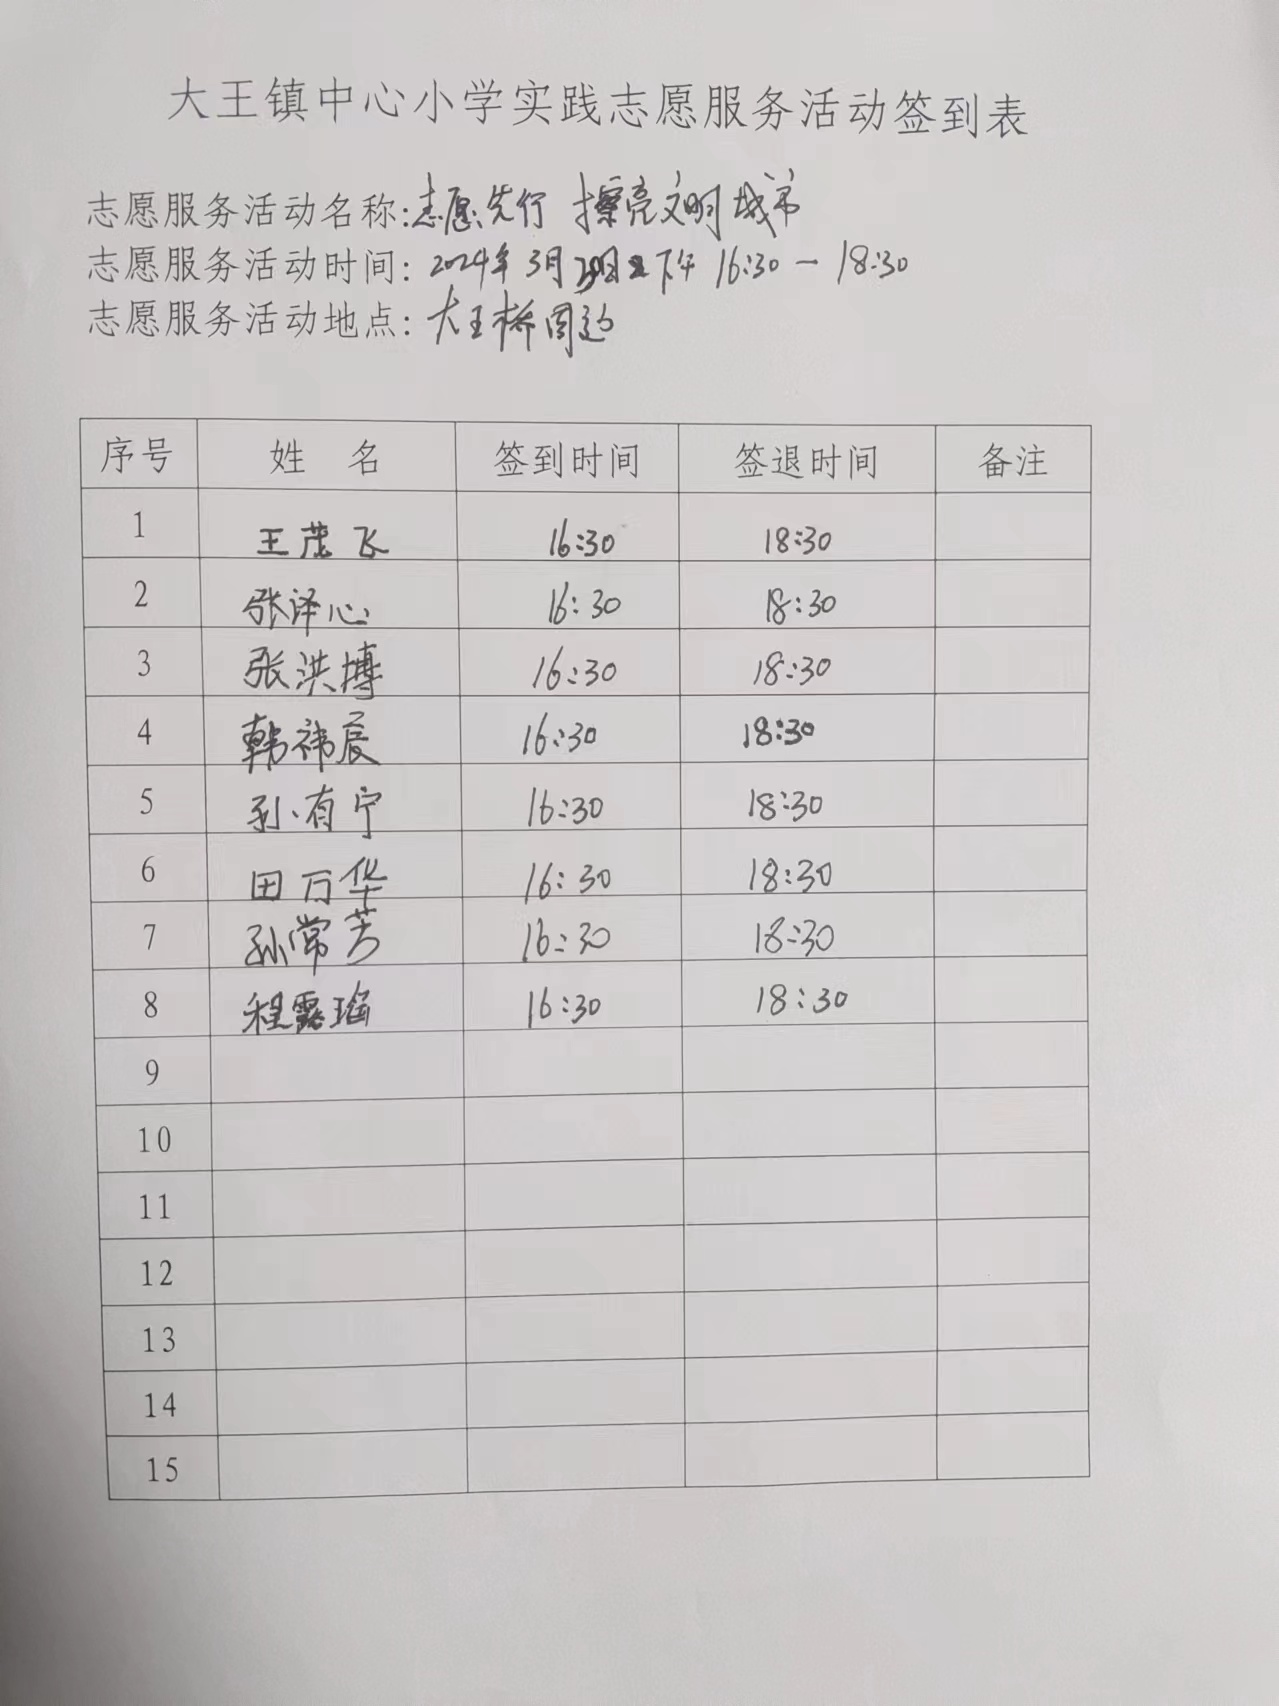 大王镇中心小学实践志愿服务活动签到表
志愿服务活动名称:志愿先行 擦亮文明城市
志愿服务活动时间: 2024年3月 下午 16:30一18:30
志愿服务活动地点: 大王桥周边
序号 姓 名 签到时间 签退时间 备注
1 王茂飞 16:30 18:30
2 张泽心 16:30 18:30
3 张洪搏 16:30 18:30
4 韩祎辰 16:30 18:30
5 孙有宁 16:30 18:30
6 田万华 16:30 18:30
7 孙常芳 16:30 18:30
8 程露瑶 16:30 18:30
9
10
11
12
13
14
15